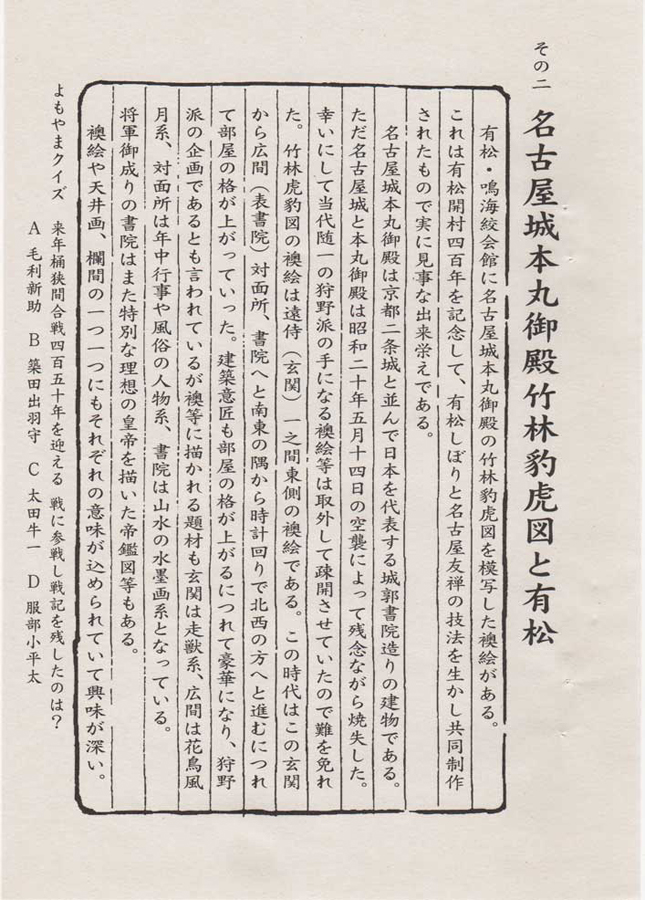 その二 名古屋城本丸御殿竹林豹虎図と有松
有松・鳴海絞会館に名古屋城本丸御殿の竹林豹虎図を模写した襖絵がある。
これは有松開村四百年を記念して、有松しぼりと名古屋友禅の技法を生かし共同制作
されたもので実に見事な出来栄えである。
名古屋城本丸御殿は京都二条城と並んで日本を代表する城郭書院造りの建物である。
ただ名古屋城と本丸御殿は昭和二十年五月十四日の空襲によって残念ながら焼失した。
幸いにして当代随一の狩野派の手になる襖絵等は取外して疎開させていたので難を免れ
た。竹林虎豹図の襖絵は遠侍（玄関）一之間東側の襖絵である。この時代はこの玄関
から広間（表書院）対面所、書院へと南東の隅から時計回りで北西の方へと進むにつれ
て部屋の格が上がっていった。建築意匠も部屋の格が上がるにつれて豪華になり、狩野
派の企画であるとも言われているが襖等に描かれる題材も玄関は走獣系、広間は花鳥風
月系、対面所は年中行事や風俗の人物系、書院は山水の水墨画系となっている。
将軍御成りの書院はまた特別な理想の皇帝を描いた帝鑑図等もある。
襖絵や天井画、欄間の一つ一つにもそれぞれの意味が込められていて興味が深い。
よもやまクイズ 来年桶狭間合戦四百五十年を迎える 戦に参戦し戦記を残したのは？
A 毛利新助 B 築田出羽守 C 太田牛一 D 服部小平太